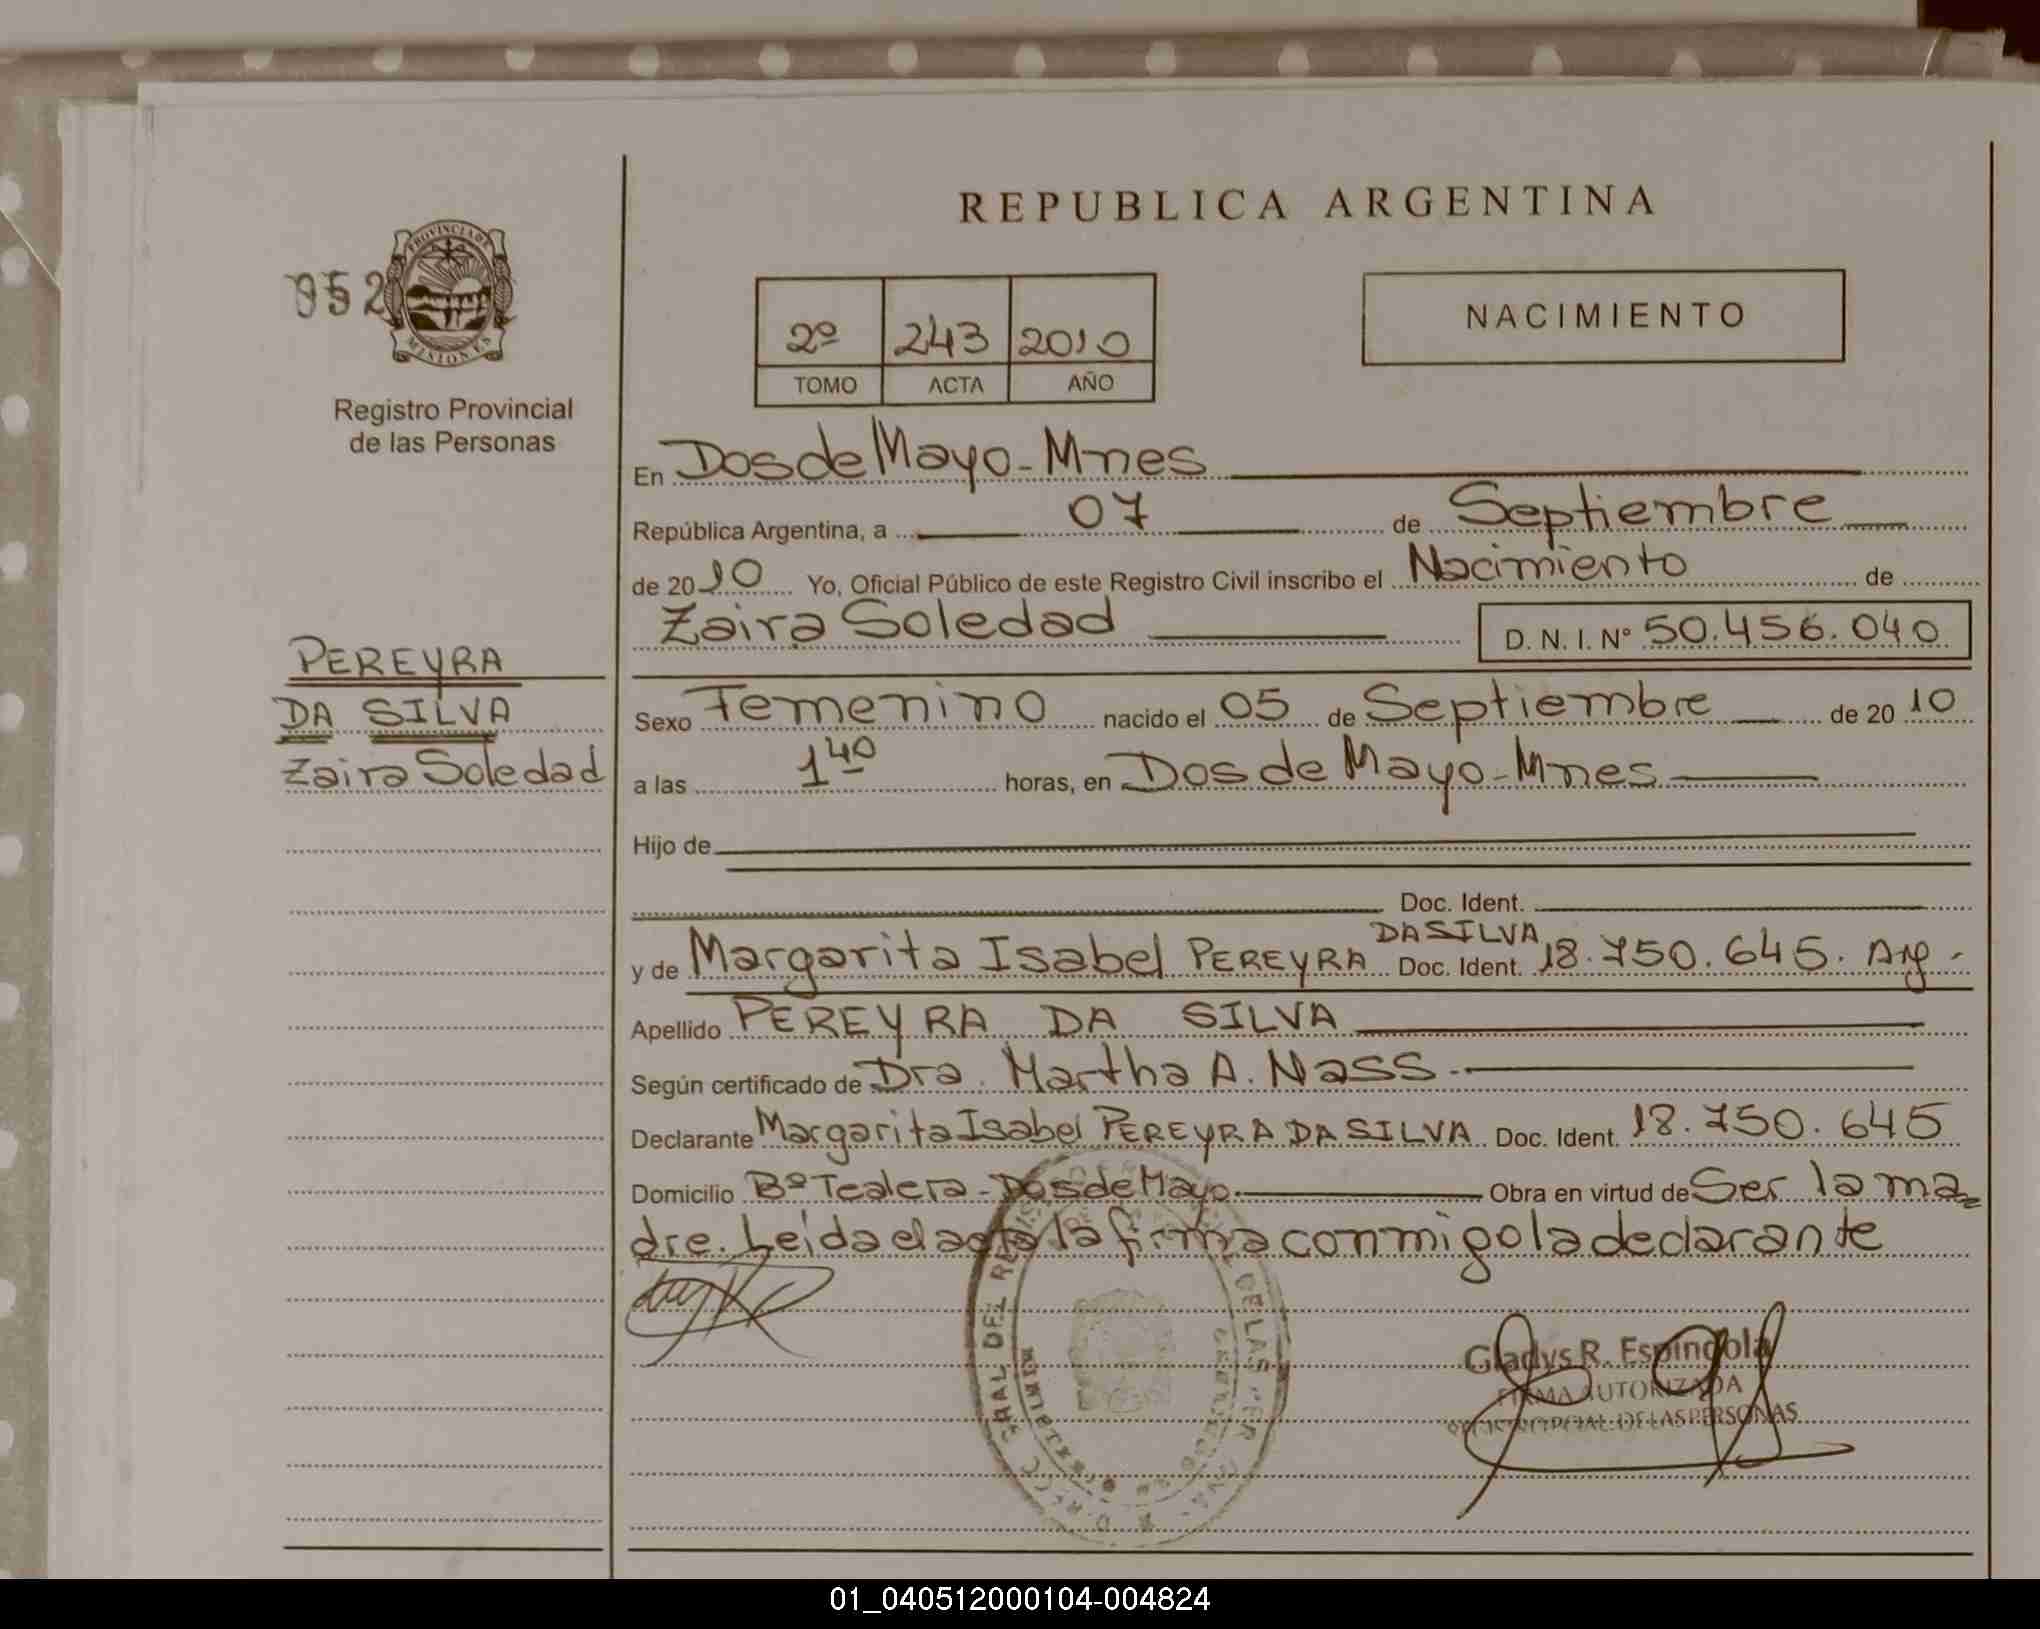 REPUBLICA ARGENTINA
952
PROVINCIA DE
MISIONES
Registro Provincial
de las Personas
2º 243 2010
TOMO ACTA AÑO
NACIMIENTO
En Dos de Mayo - Mnes
República Argentina, a 07 de Septiembre
de 2010 Yo, Oficial Público de este Registro Civil inscribo el Nacimiento de
Zaira Soledad D. N. I. Nº 50.456.040
PEREYRA
DA SILVA
Zaira Soledad
Sexo Femenino nacido el 05 de Septiembre de 2010
a las 1 40 horas, en Dos de Mayo - Mnes
Hijo de
Doc. Ident.
y de Margarita Isabel PEREYRA DA SILVA Doc. Ident. 18.750.645. Arg -
Apellido PEREYRA DA SILVA
Según certificado de Dra. Martha A. Nass.-
Declarante Margarita Isabel PEREYRA DA SILVA Doc. Ident. 18.750.645
Domicilio Bº Tealera - Dos de Mayo Obra en virtud de Ser la ma=
dre. Leída el acta la firma conmigo la declarante
Gladys R. Espindola
FIRMA AUTORIZADA
DE LAS PERSONAS
01_040512000104-004824